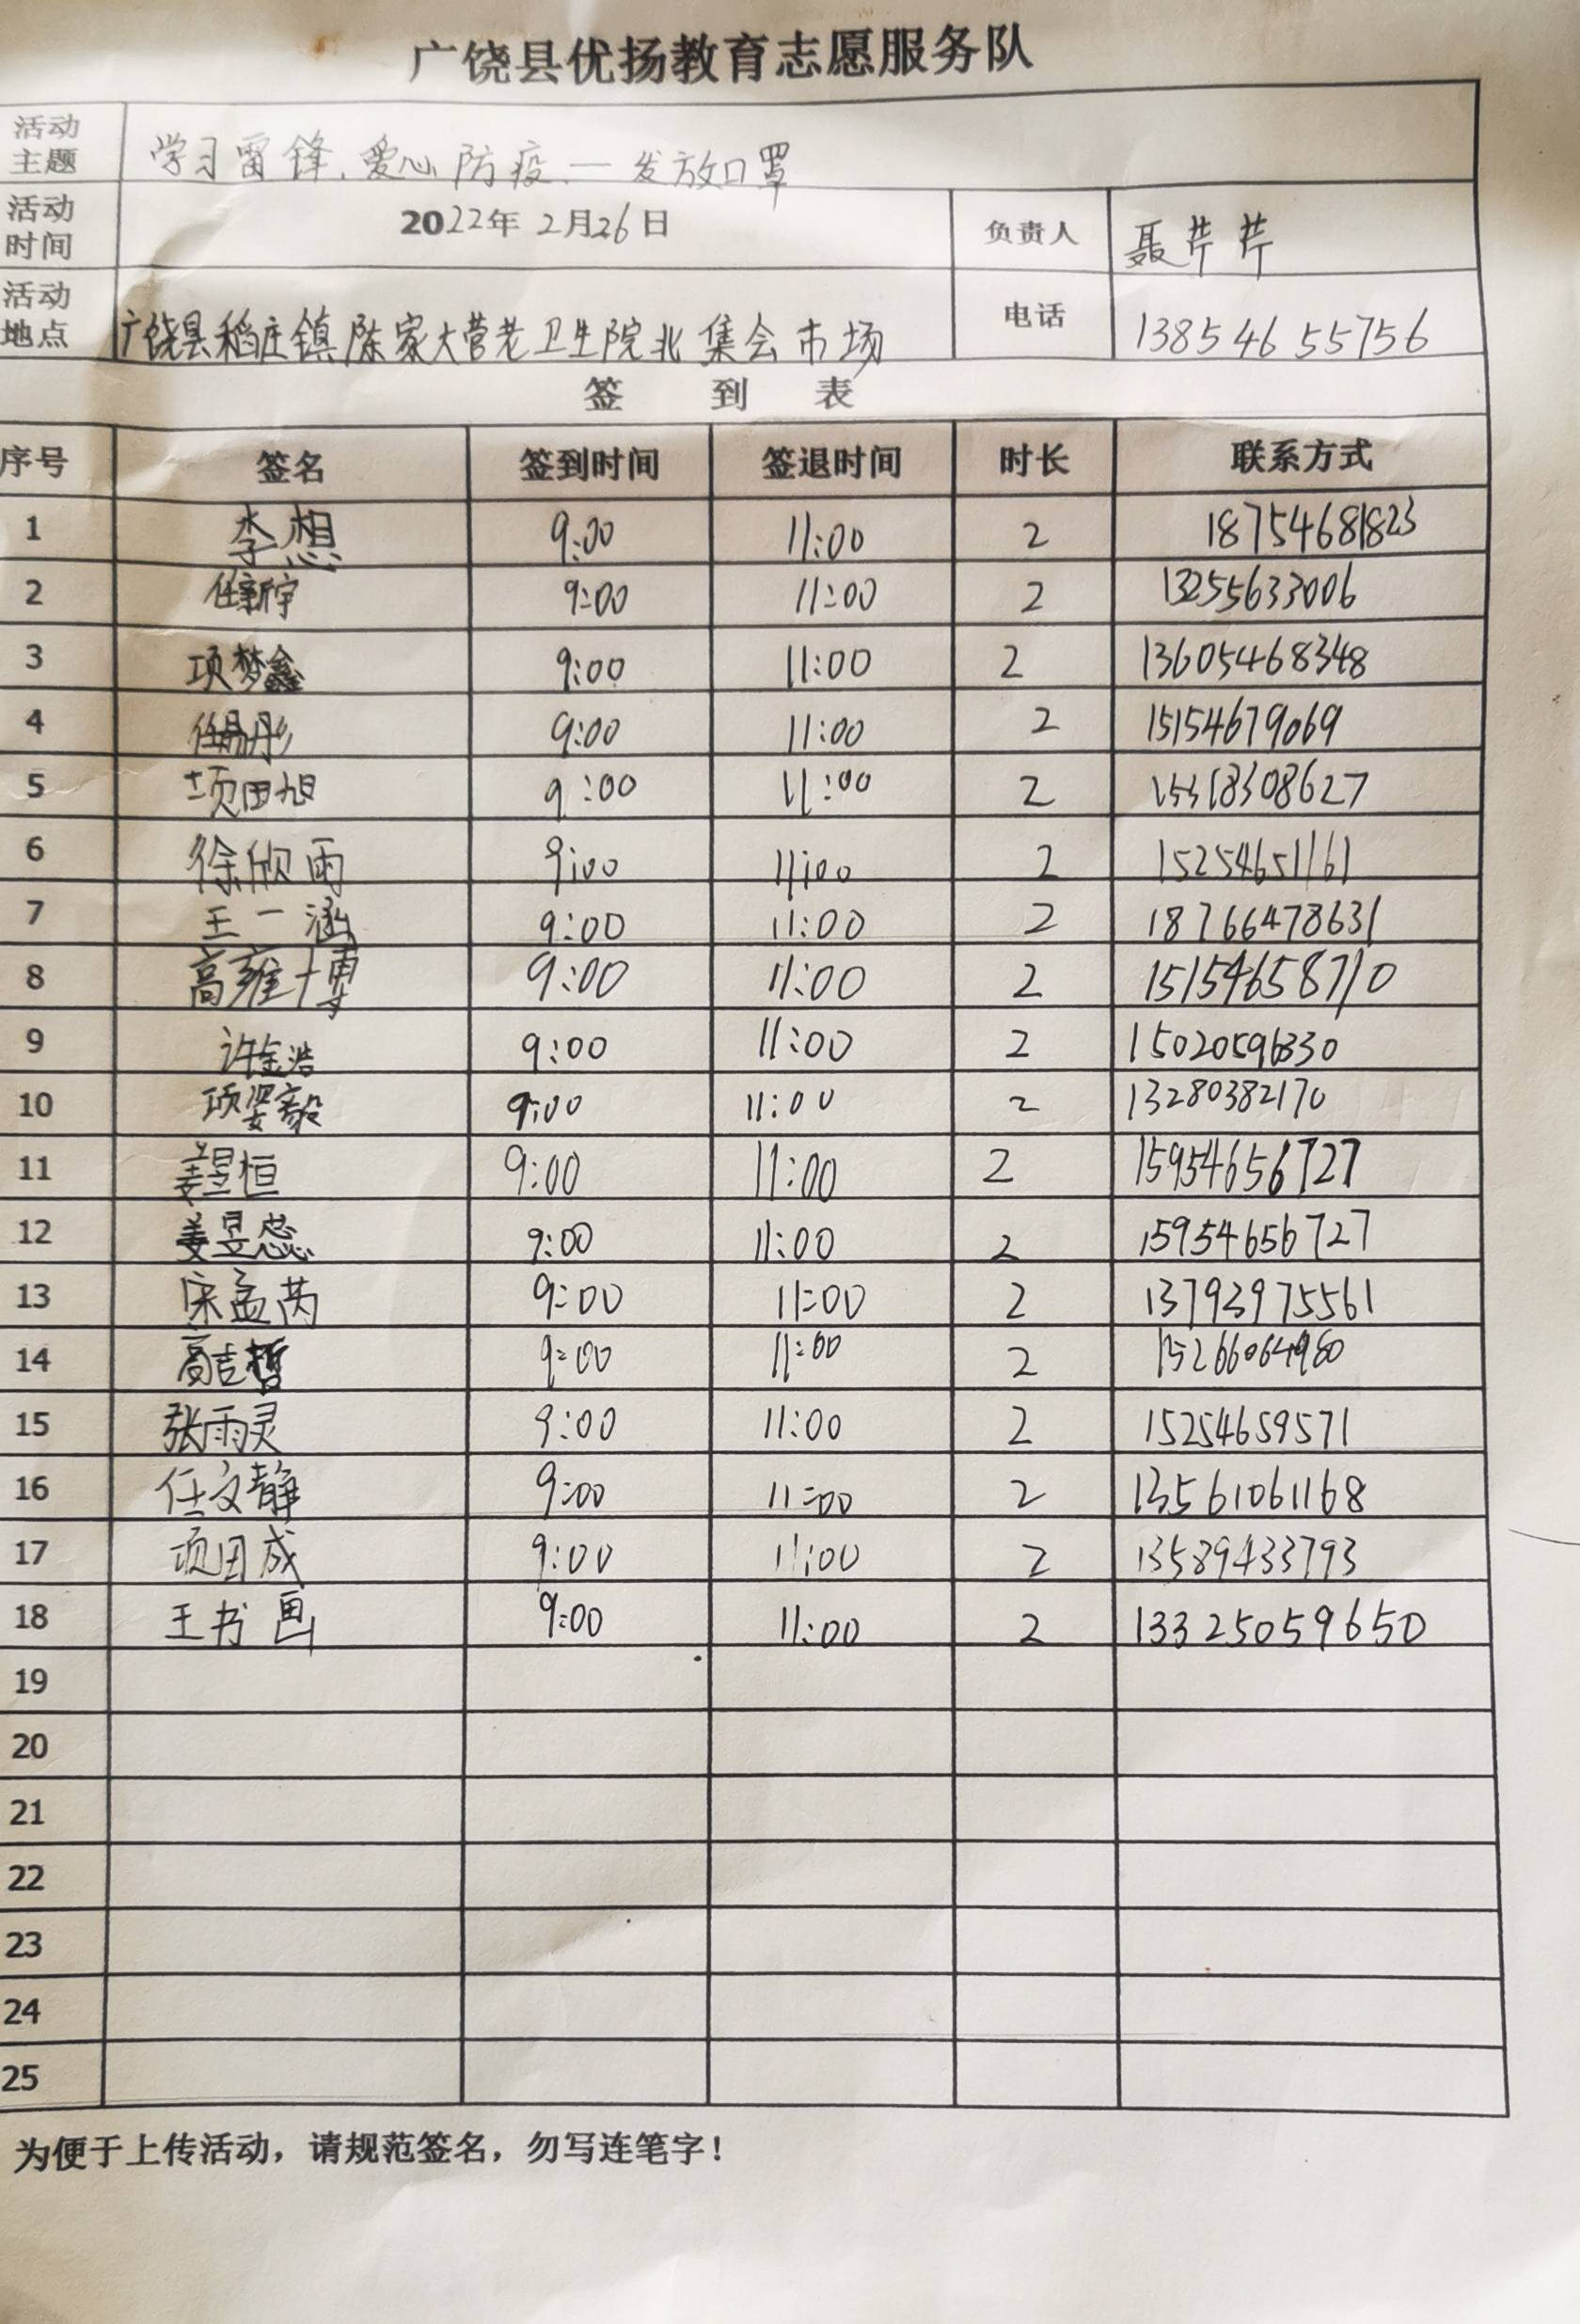 广饶县优扬教育志愿服务队
活动主题 学习雷锋、爱心防疫、一发放口罩
活动时间 2022年2月26日 负责人 聂芹芹
活动地点 广饶县稻庄镇陈家大营老卫生院北集会市场 电话 13854655756
签到表
序号 签名 签到时间 签退时间 时长 联系方式
1 李想 9:00 11:00 2 18754681823
2 任新宇 9:00 11:00 2 13255633006
3 项梦鑫 9:00 11:00 2 13605468348
4 9:00 11:00 2 15154679069
5 项田旭 9:00 11:00 2 15318308627
6 徐欣雨 9:00 11:00 2 15254651161
7 王一涵 9:00 11:00 2 18766478631
8 高雍博 9:00 11:00 2 15154658710
9 许金浩 9:00 11:00 2 15020596330
10 9:00 11:00 2 13280382170
11 姜昱恒 9:00 11:00 2 15954656727
12 姜昱蕊 9:00 11:00 2 15954656727
13 宋孟芮 9:00 11:00 2 13793975561
14 高吉哲 9:00 11:00 2 15266064980
15 张雨灵 9:00 11:00 2 15254659571
16 任文静 9:00 11:00 2 13561061168
17 项田成 9:00 11:00 2 13589433793
18 王书画 9:00 11:00 2 13325059650
19
20
21
22
23
24
25
为便于上传活动，请规范签名，勿写连笔字！